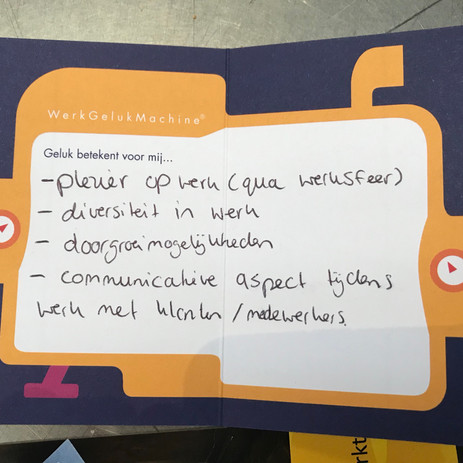 WerkGelukMachine®
Geluk betekent voor mij...
-plezier op werk (qua werksfeer)
- diversiteit in werk
- doorgroeimogelijkheden
- communicatieve aspect tijdens
werk met klanten / medewerkers.
rkt